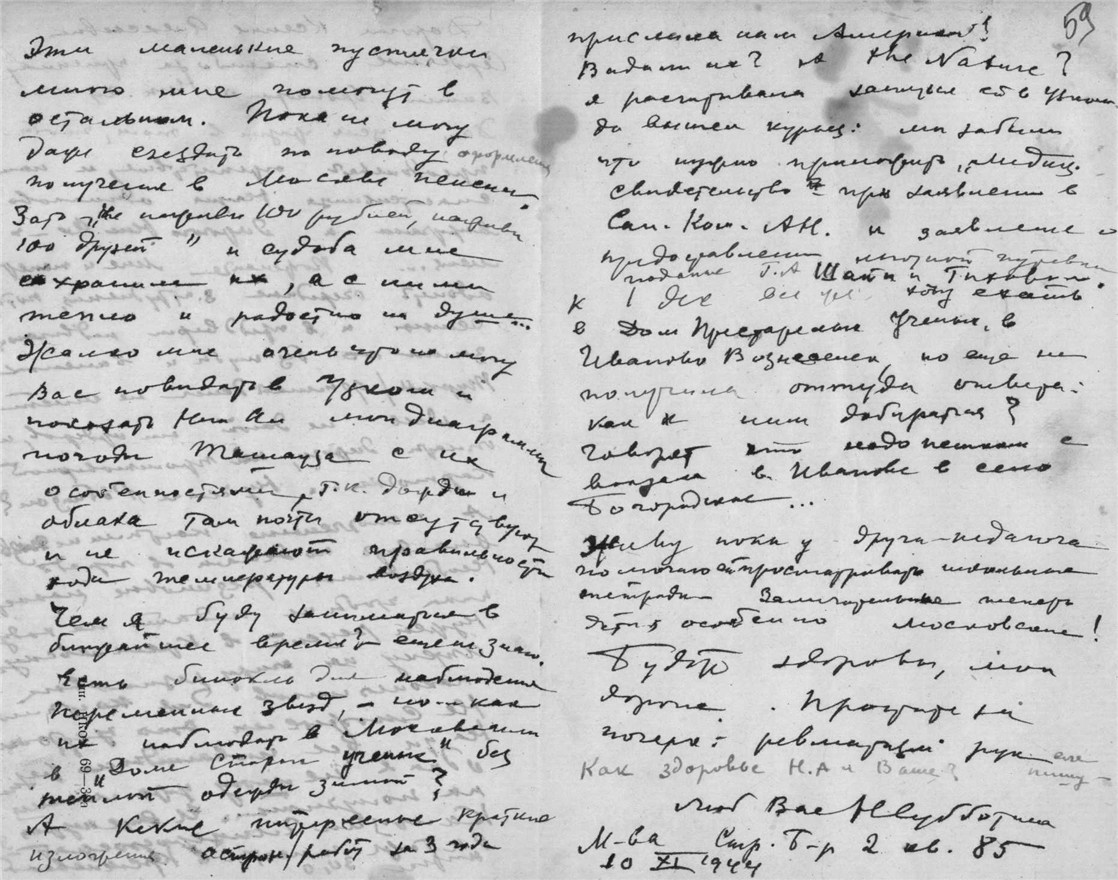 Эти маленькие пустячки
много мне помогут в
остальном. Пока не могу
даже съездить по поводу оформления
получения в Москве пенсии.
Зато „Не имей 100 рублей, а имей
100 друзей" и судьба мне
сохранила их, а с ними
тепло и радостно на душе...
Жалко мне очень что не могу
Вас повидать в Узком и
показать Ник Ал мои диаграммы
погоды Ташауза с их
особенностями, т.к. дожди и
облака там почти отсутствуют
и не искажают правильности
хода температуры воздуха.
Чем я буду заниматься в
ближайшее время? еще не знаю.
Есть бинокль для наблюдения
переменных звезд, – но как
их наблюдать в Московском
в „Доме старых ученых" без
теплой одежды зимой?
А какие интересные краткие
изложения астроном. работ за 3 года
59
присланы нам Америкой!
Видали их? А the Nature?
я рассчитывала
до вышки курьез: мы забыли
что нужно приложить „медиц.
свидетельство при заявлении в
Сан. Ком. АН. и заявление о
предоставлении путевки
подание Г.А Шайн и Тиховым.
К ! хочу ехать
в Дом Престарелых Ученых, в
Иваново Вознесенск, но еще не
получила оттуда ответа:
как к ним добираться?
Говорят что надо пешком с
вокзала в Иванове в село
Богородское...
Живу пока у друга-педагога
помогаю просматривать школьные
тетрадки Замечательные теперь
дети, особенно московские!
Будьте здоровы, мои
дорогие. Простите за
почерк: ревматизм рук еле
пишу –
Как здоровье Н.А и Ваше?
Люб Вас НСубботина
М-ва Стр. Б-р 2 кв. 85
10 XI 1944